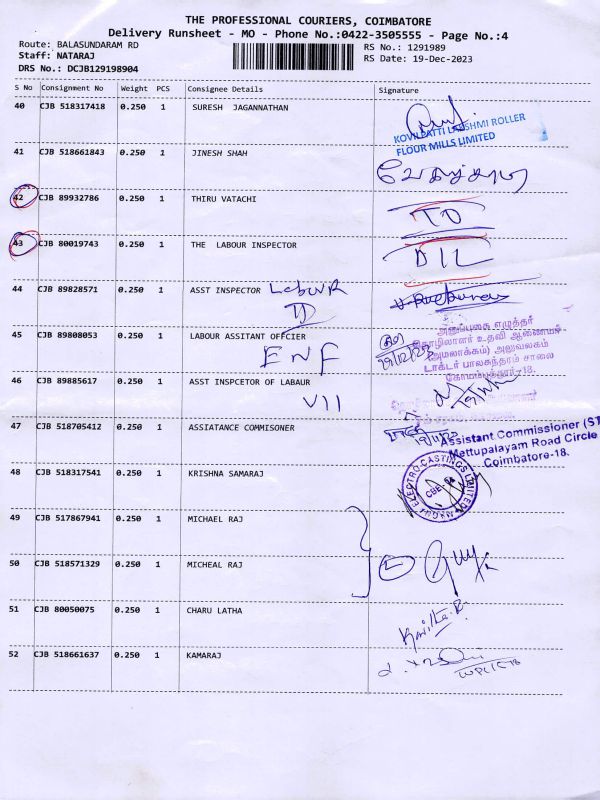 THE PROFESSIONAL COURIERS, COIMBATORE
Delivery Runsheet - MO - Phone No.:0422-3505555 - Page No.:4
Route: BALASUNDARAM RD
RS No.: 1291989
Staff: NATARAJ
RS Date: 19-Dec-2023
DRS No.: DCJB129198904
S No Consignment No Weight PCS Consignee Details Signature
40 CJB 518317418 0.250 1 SURESH JAGANNATHAN
KOVILPATTI LAKSHMI ROLLER
FLOUR MILLS LIMITED
41 CJB 518661843 0.250 1 JINESH SHAH
42 CJB 89932786 0.250 1 THIRU VATACHI
TD
43 CJB 80019743 0.250 1 THE LABOUR INSPECTOR
DIL
44 CJB 89828571 0.250 1 ASST INSPECTOR Labour
அனுப்புகை எழுத்தர்
தொழிலாளர் உதவி ஆணையர்
45 CJB 89808053 0.250 1 LABOUR ASSITANT OFFCIER
(அமலாக்கம்) அலுவலகம்
ENF
19/12/23
டாக்டர் பாலசுந்தரம் சாலை
கோயம்புத்தூர்-18.
46 CJB 89885617 0.250 1 ASST INSPCETOR OF LABAUR
VII
47 CJB 518705412 0.250 1 ASSIATANCE COMMISONER
Assistant Commissioner (ST
Mettupalayam Road Circle
Coimbatore-18.
48 CJB 518317541 0.250 1 KRISHNA SAMARAJ
ELECTRO CASTINGS LIMITED
49 CJB 517867941 0.250 1 MICHAEL RAJ
50 CJB 518571329 0.250 1 MICHEAL RAJ
51 CJB 80050075 0.250 1 CHARU LATHA
Kavitha.R.
52 CJB 518661637 0.250 1 KAMARAJ